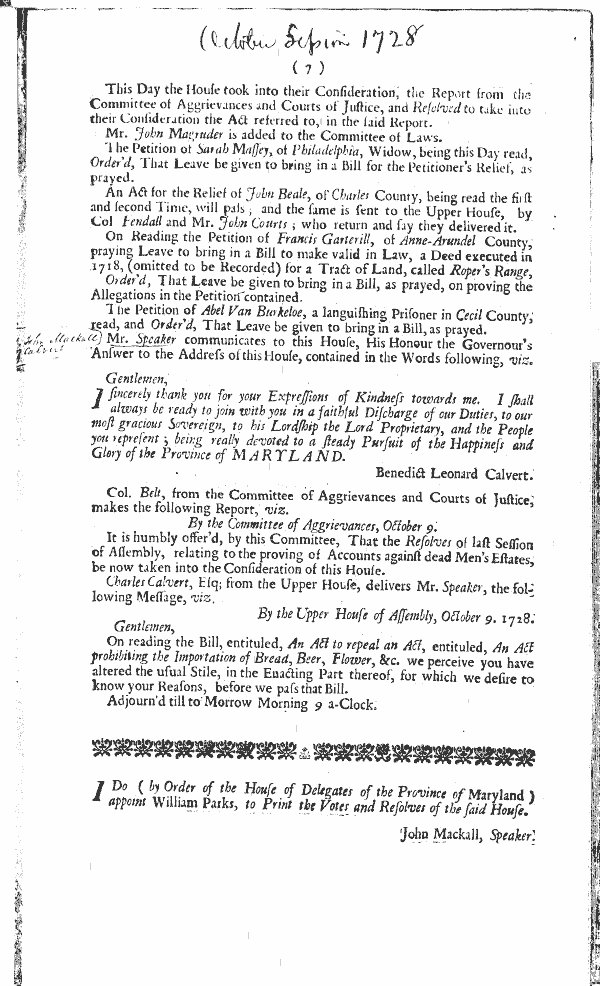 October Session 1728
( 7 )
This Day the Houſe took into their Conſideration, the Report from the
Committee of Aggrievances and Courts of Juſtice, and Reſolved to take into
their Conſideration the Act referred to, in the ſaid Report.
Mr. John Magruder is added to the Committee of Laws.
The Petition of Sarah Maſſey, of Philadelphia, Widow, being this Day read,
Order'd, That Leave be given to bring in a Bill for the Petitioner's Relief, as
prayed.
An Act for the Relief of John Beale, of Charles County, being read the firſt
and ſecond Time, will paſs; and the ſame is ſent to the Upper Houſe, by
Col Fendall and Mr. John Courts; who return and ſay they delivered it.
On Reading the Petition of Francis Garterill, of Anne-Arundel County,
praying Leave to bring in a Bill to make valid in Law, a Deed executed in
1718, (omitted to be Recorded) for a Tract of Land, called Roper's Range,
Order'd, That Leave be given to bring in a Bill, as prayed, on proving the
Allegations in the Petition contained.
The Petition of Abel Van Burkeloe, a languiſhing Priſoner in Cecil County,
read, and Order'd, That Leave be given to bring in a Bill, as prayed.
John Mackall) Mr. Speaker communicates to this Houſe, His Honour the Governour's
Calvert Anſwer to the Addreſs of this Houſe, contained in the Words following, viz.
Gentlemen,
I ſincerely thank you for your Expreſſions of Kindneſs towards me. I ſhall
always be ready to join with you in a faithful Diſcharge of our Duties, to our
moſt gracious Sovereign, to his Lordſhip the Lord Proprietary, and the People
you repreſent; being really devoted to a ſteady Purſuit of the Happineſs and
Glory of the Province of MARYLAND.
Benedict Leonard Calvert.
Col. Belt, from the Committee of Aggrievances and Courts of Juſtice,
makes the following Report, viz.
By the Committee of Aggrievances, October 9.
It is humbly offer'd, by this Committee, That the Reſolves of laſt Seſſion
of Aſſembly, relating to the proving of Accounts againſt dead Men's Eſtates,
be now taken into the Conſideration of this Houſe.
Charles Calvert, Eſq; from the Upper Houſe, delivers Mr. Speaker, the fol-
lowing Meſſage, viz.
By the Upper Houſe of Aſſembly, October 9. 1728.
Gentlemen,
On reading the Bill, entituled, An Act to repeal an Act, entituled, An Act
prohibiting the Importation of Bread, Beer, Flower, &c. we perceive you have
altered the uſual Stile, in the Enacting Part thereof, for which we deſire to
know your Reaſons, before we paſs that Bill.
Adjourn'd till to Morrow Morning 9 a-Clock.
I Do ( by Order of the Houſe of Delegates of the Province of Maryland )
appoint William Parks, to Print the Votes and Reſolves of the ſaid Houſe.
John Mackall, Speaker.